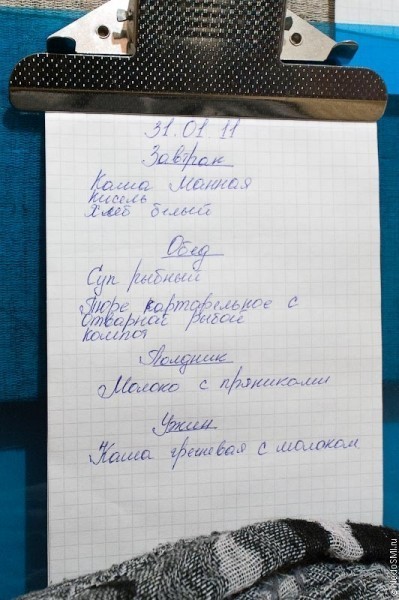 31.01.11
Завтрак
Каша Манная
кисель
Хлеб белый
Обед
Суп рыбный
Пюре картофельное с
отварной рыбой
компот
Полдник
Молоко с пряниками
Ужин
Каша гречневая с молоком